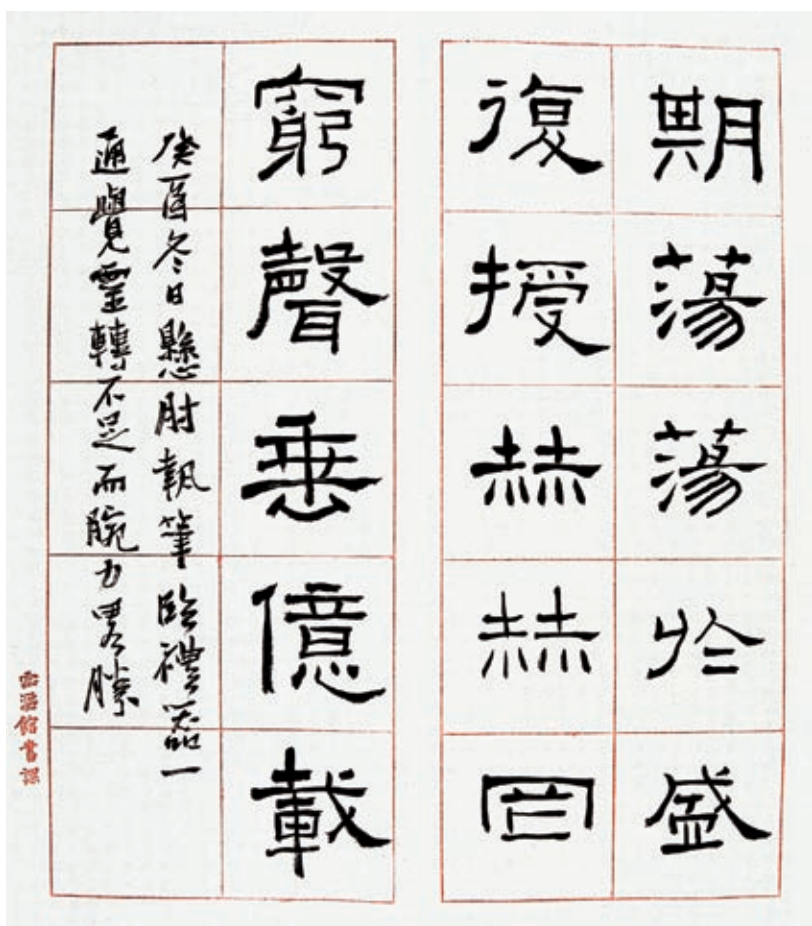 期蕩蕩於盛
復授赫赫罔
窮聲垂億載
癸酉冬日懸肘執筆臨禮器一
通覺靈轉不足而腕力畧勝
館書課